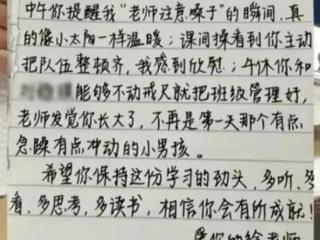 中午你提醒我“老师注意嗓子”的瞬间，真
的像小太阳一样温暖；课间操看到你主动
把队伍整顿齐，我感到欣慰；午休你和
能够不动戒尺就把班级管理好，
老师发觉你长大了，不再是第一天那个有点
急躁有点冲动的小男孩。
希望你保持这份学习的劲头，多听、多
看、多思考，多读书，相信你会有所成就！
爱你的徐老师